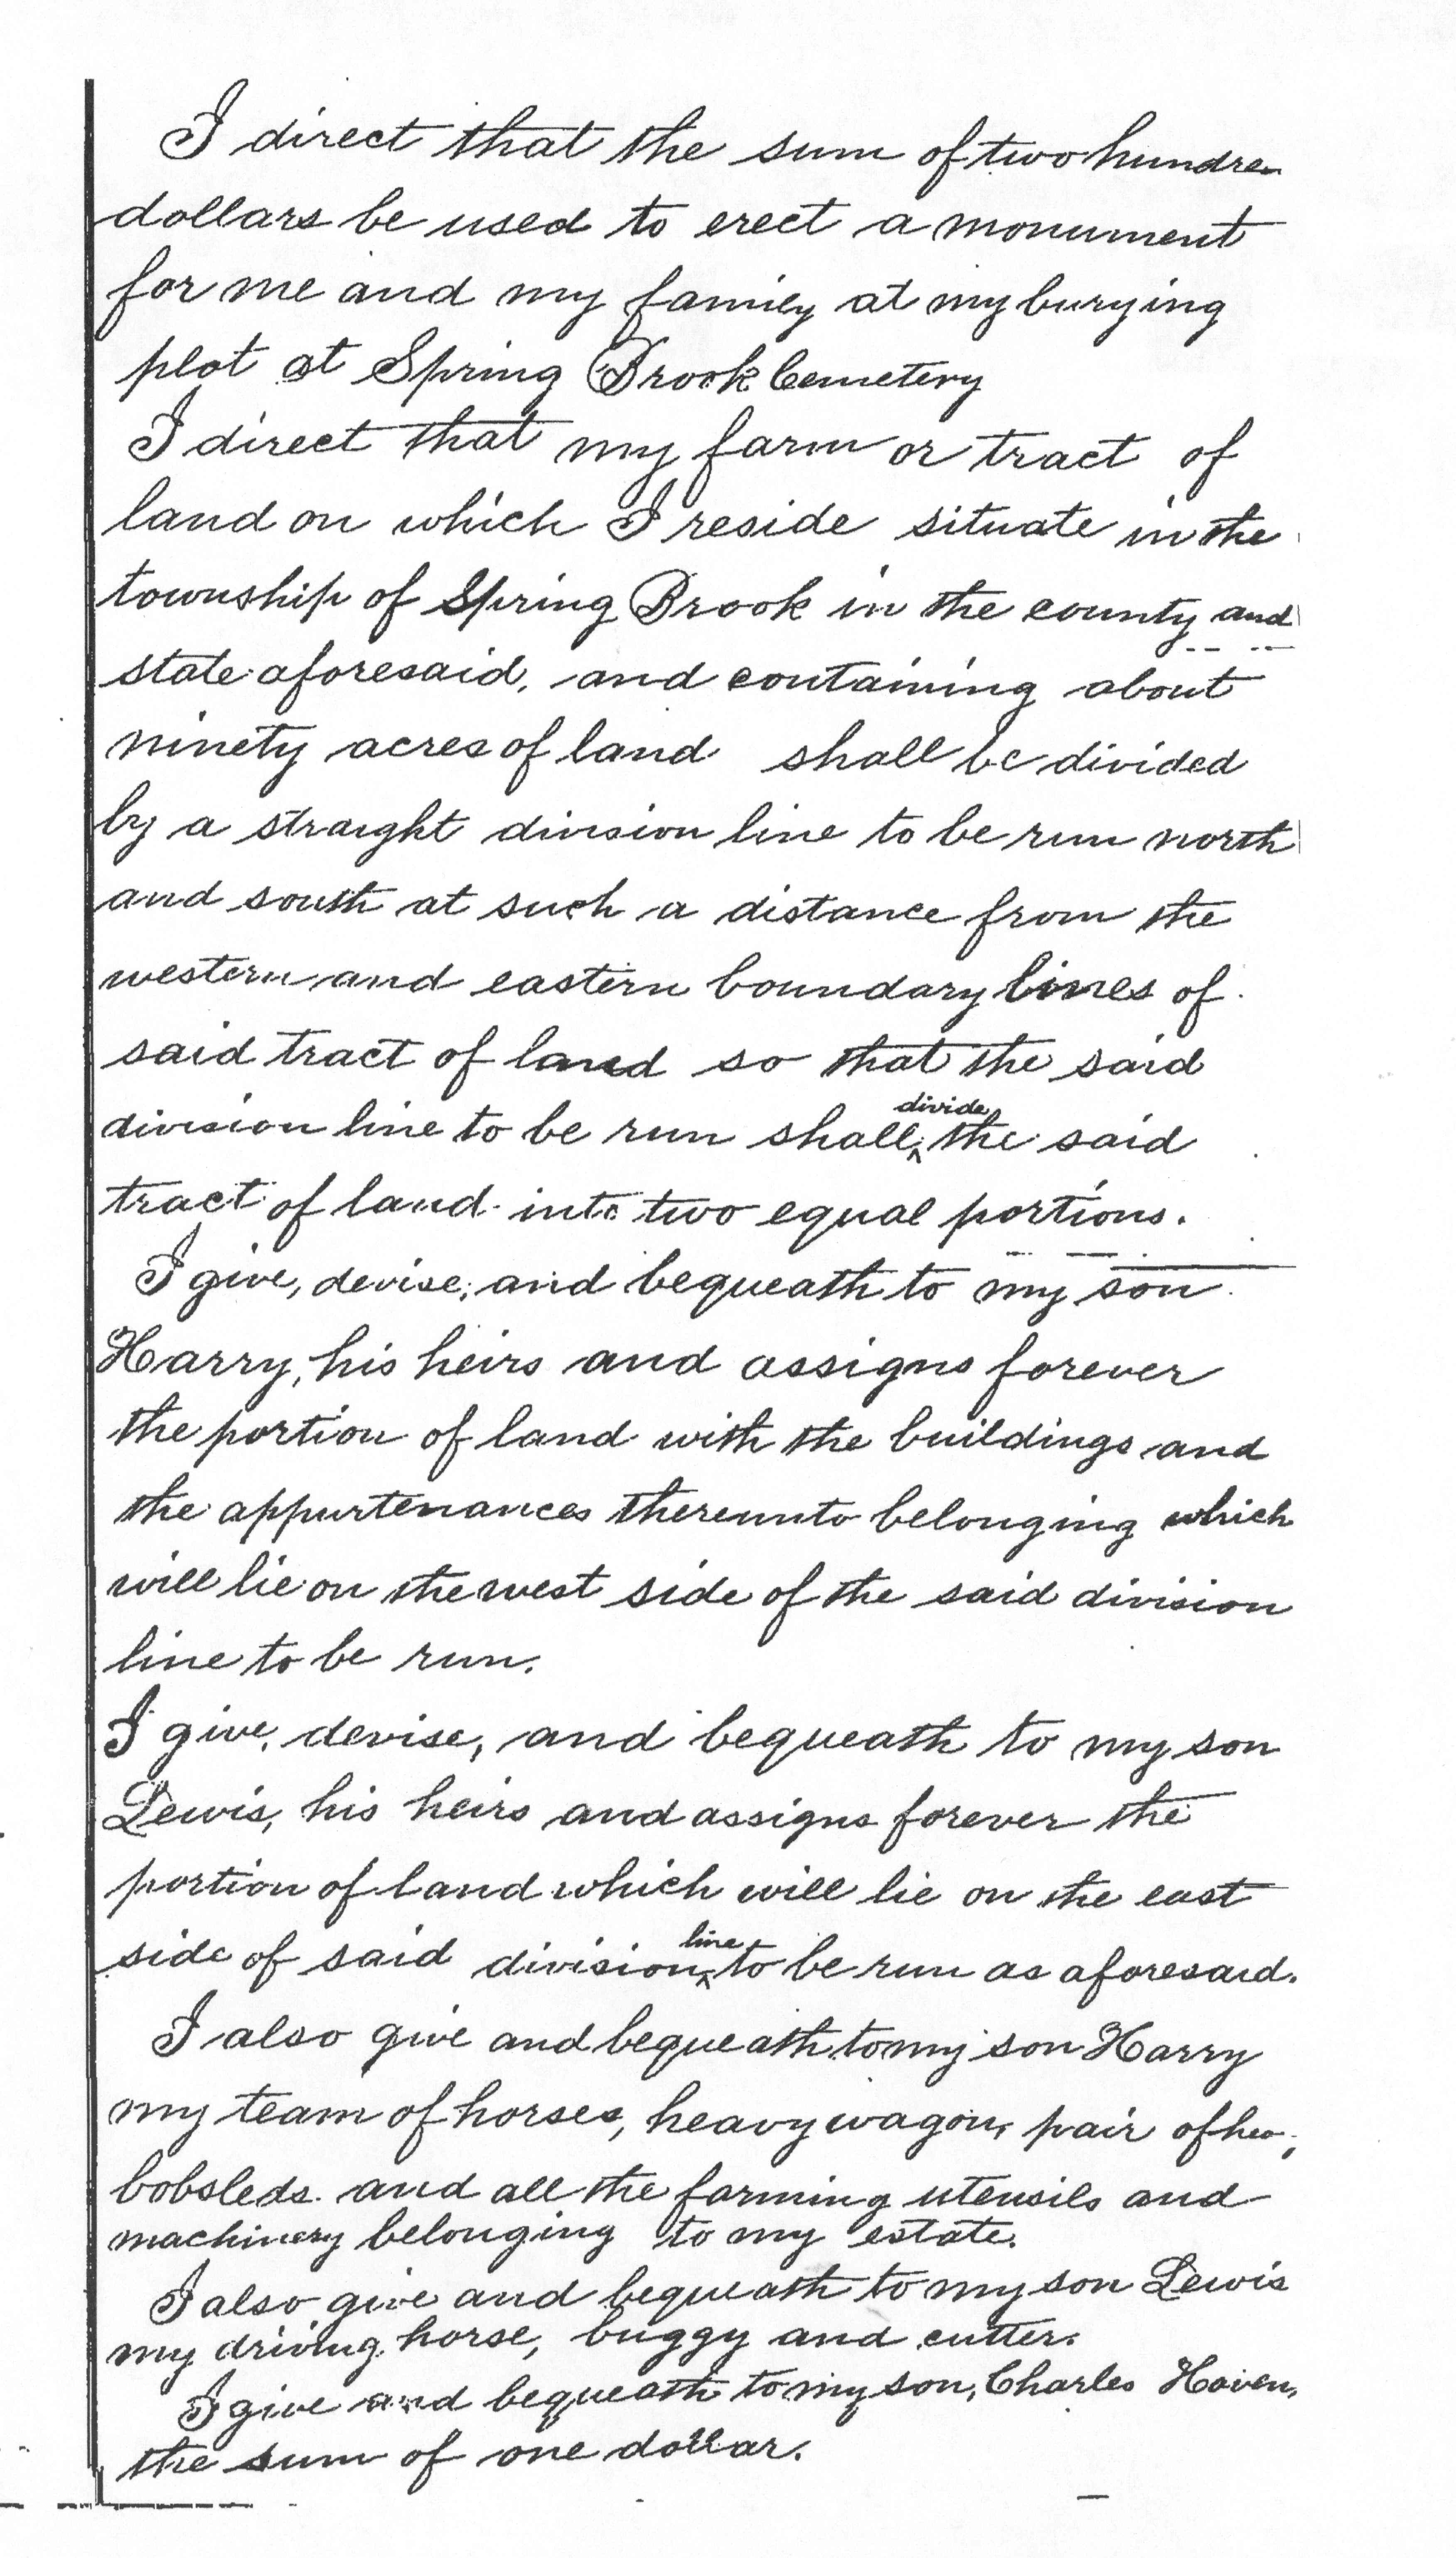 I direct that the sum of two hundre
dollars be used to erect a monument
for me and my family at my burying
plot at Spring Brook Cemetery
I direct that my farm or tract of
land on which I reside situate in the
township of Spring Brook in the county and
state aforesaid, and containing about
ninety acres of land shall be divided
by a straight division line to be run north
and south at such a distance from the
western and eastern boundary lines of
said tract of land so that the said
division line to be run shall divide the said
tract of land into two equal portions.
I give, devise, and bequeath to my son
Harry, his heirs and assigns forever
the portion of land with the buildings and
the appurtenances thereunto belonging which
will lie on the west side of the said division
line to be run.
I give, devise, and bequeath to my son
Lewis, his heirs and assigns forever the
portion of land which will lie on the east
side of said division line to be run as aforesaid.
I also give and bequeath to my son Harry
my team of horses, heavy wagon, pair of
bobsleds. and all the farming utensils and
machinery belonging to my estate.
I also give and bequeath to my son Lewis
my driving horse, buggy and cutter.
I give and bequeath to my son, Charles Haven,
the sum of one dollar.